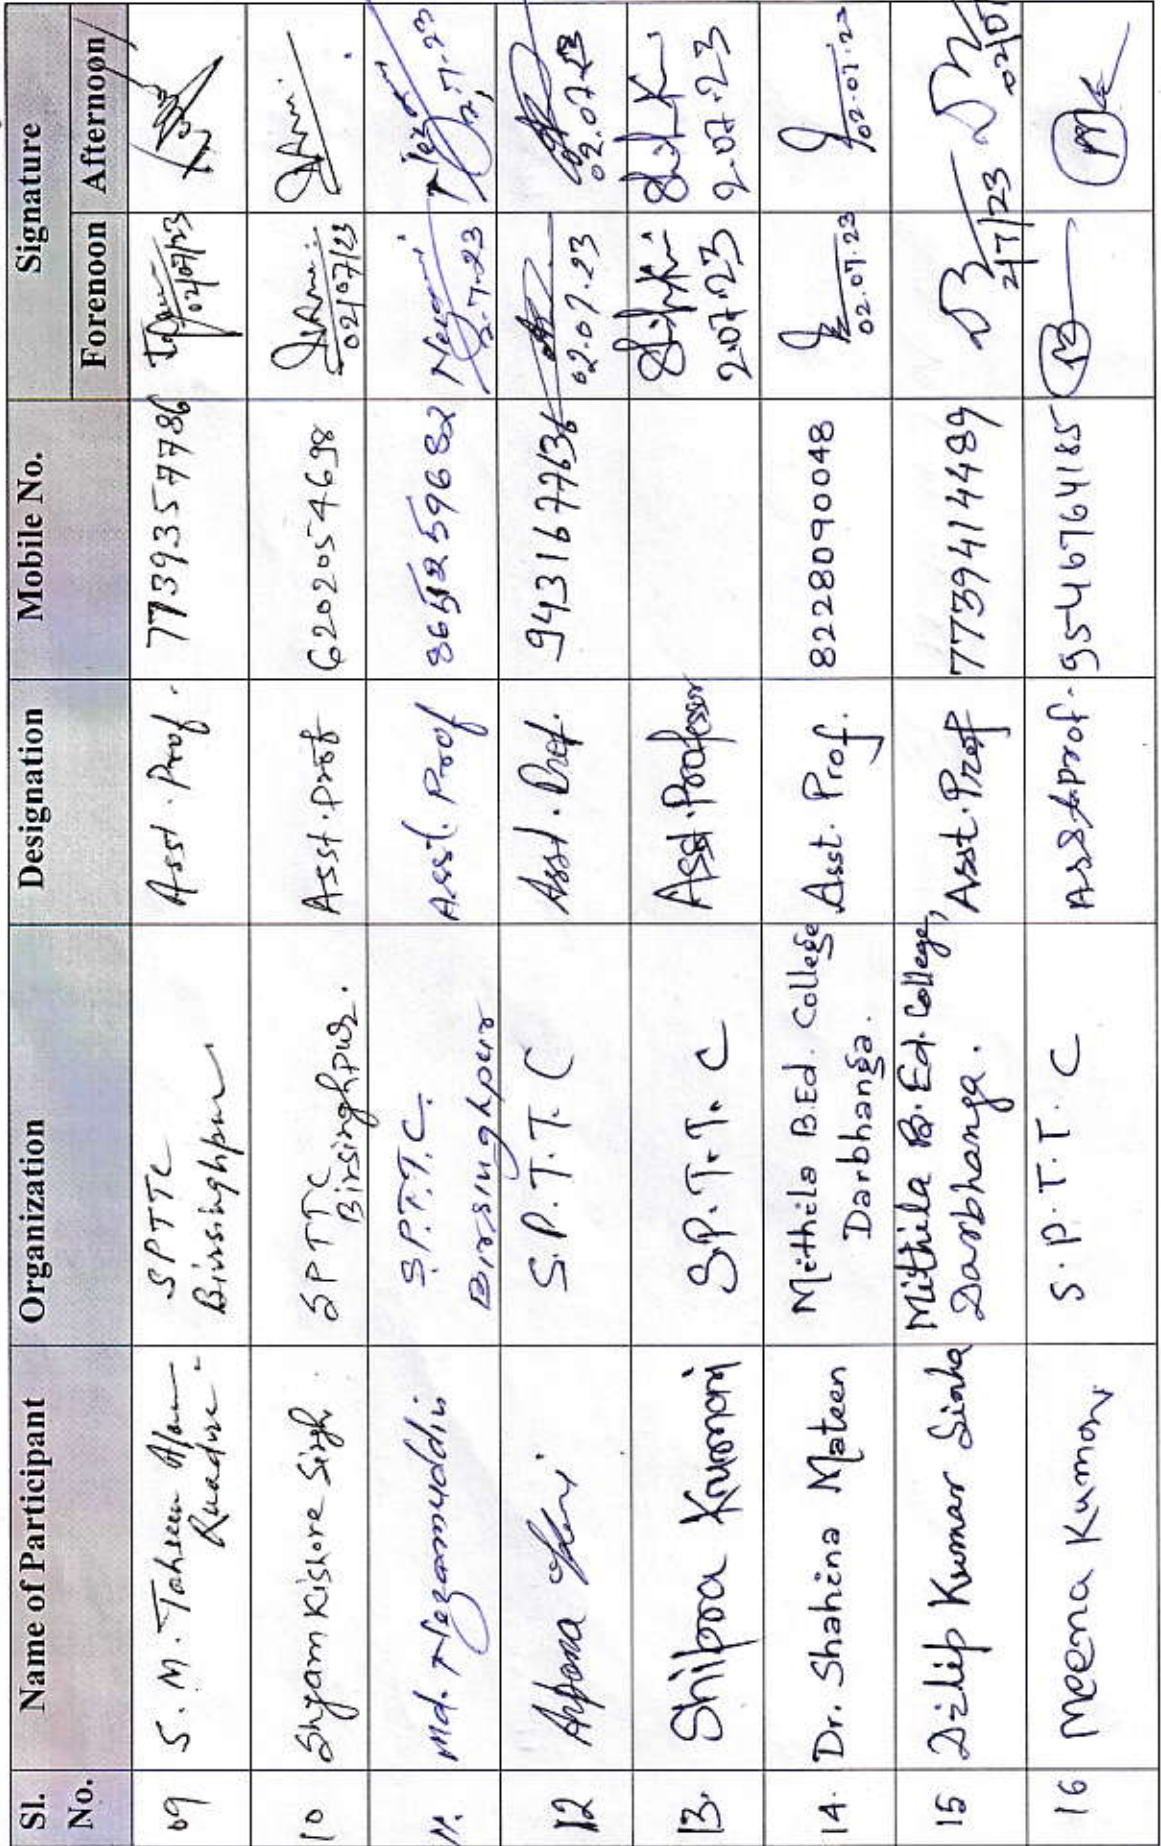 Sl. No. Name of Participant Organization Designation Mobile No. Signature
Forenoon Afternoon
09 S. M. Tahseen SPTTC Birsinghpur Asst. Prof. 7739357786 02/07/23
10 Shyam Kishore Singh. SPTTC Birsinghpur. Asst. Prof 6202054698 02/07/23
11. Md. Nezamuddin S.P.T.T.C. Birsinghpur Asst. Prof 2.7.23 2.7.23
12 S.P.T.T.C Asst. Prof. 02.07.23 02.07.23
13. Shipra Kumari S.P.T.T.C Asst. Professor 2.07.23 2.07.23
14. Dr. Shahina Mateen Mithila B.Ed. College Darbhanga. Asst. Prof. 8228090048 02.07.23 02.07.23
15 Dilip Kumar Sinha Mithila B. Ed. College, Darbhanga. Asst. Prof 7739414489 2/7/23
16 Meena Kumari S.P.T.T.C Asst. Prof. 9546764185